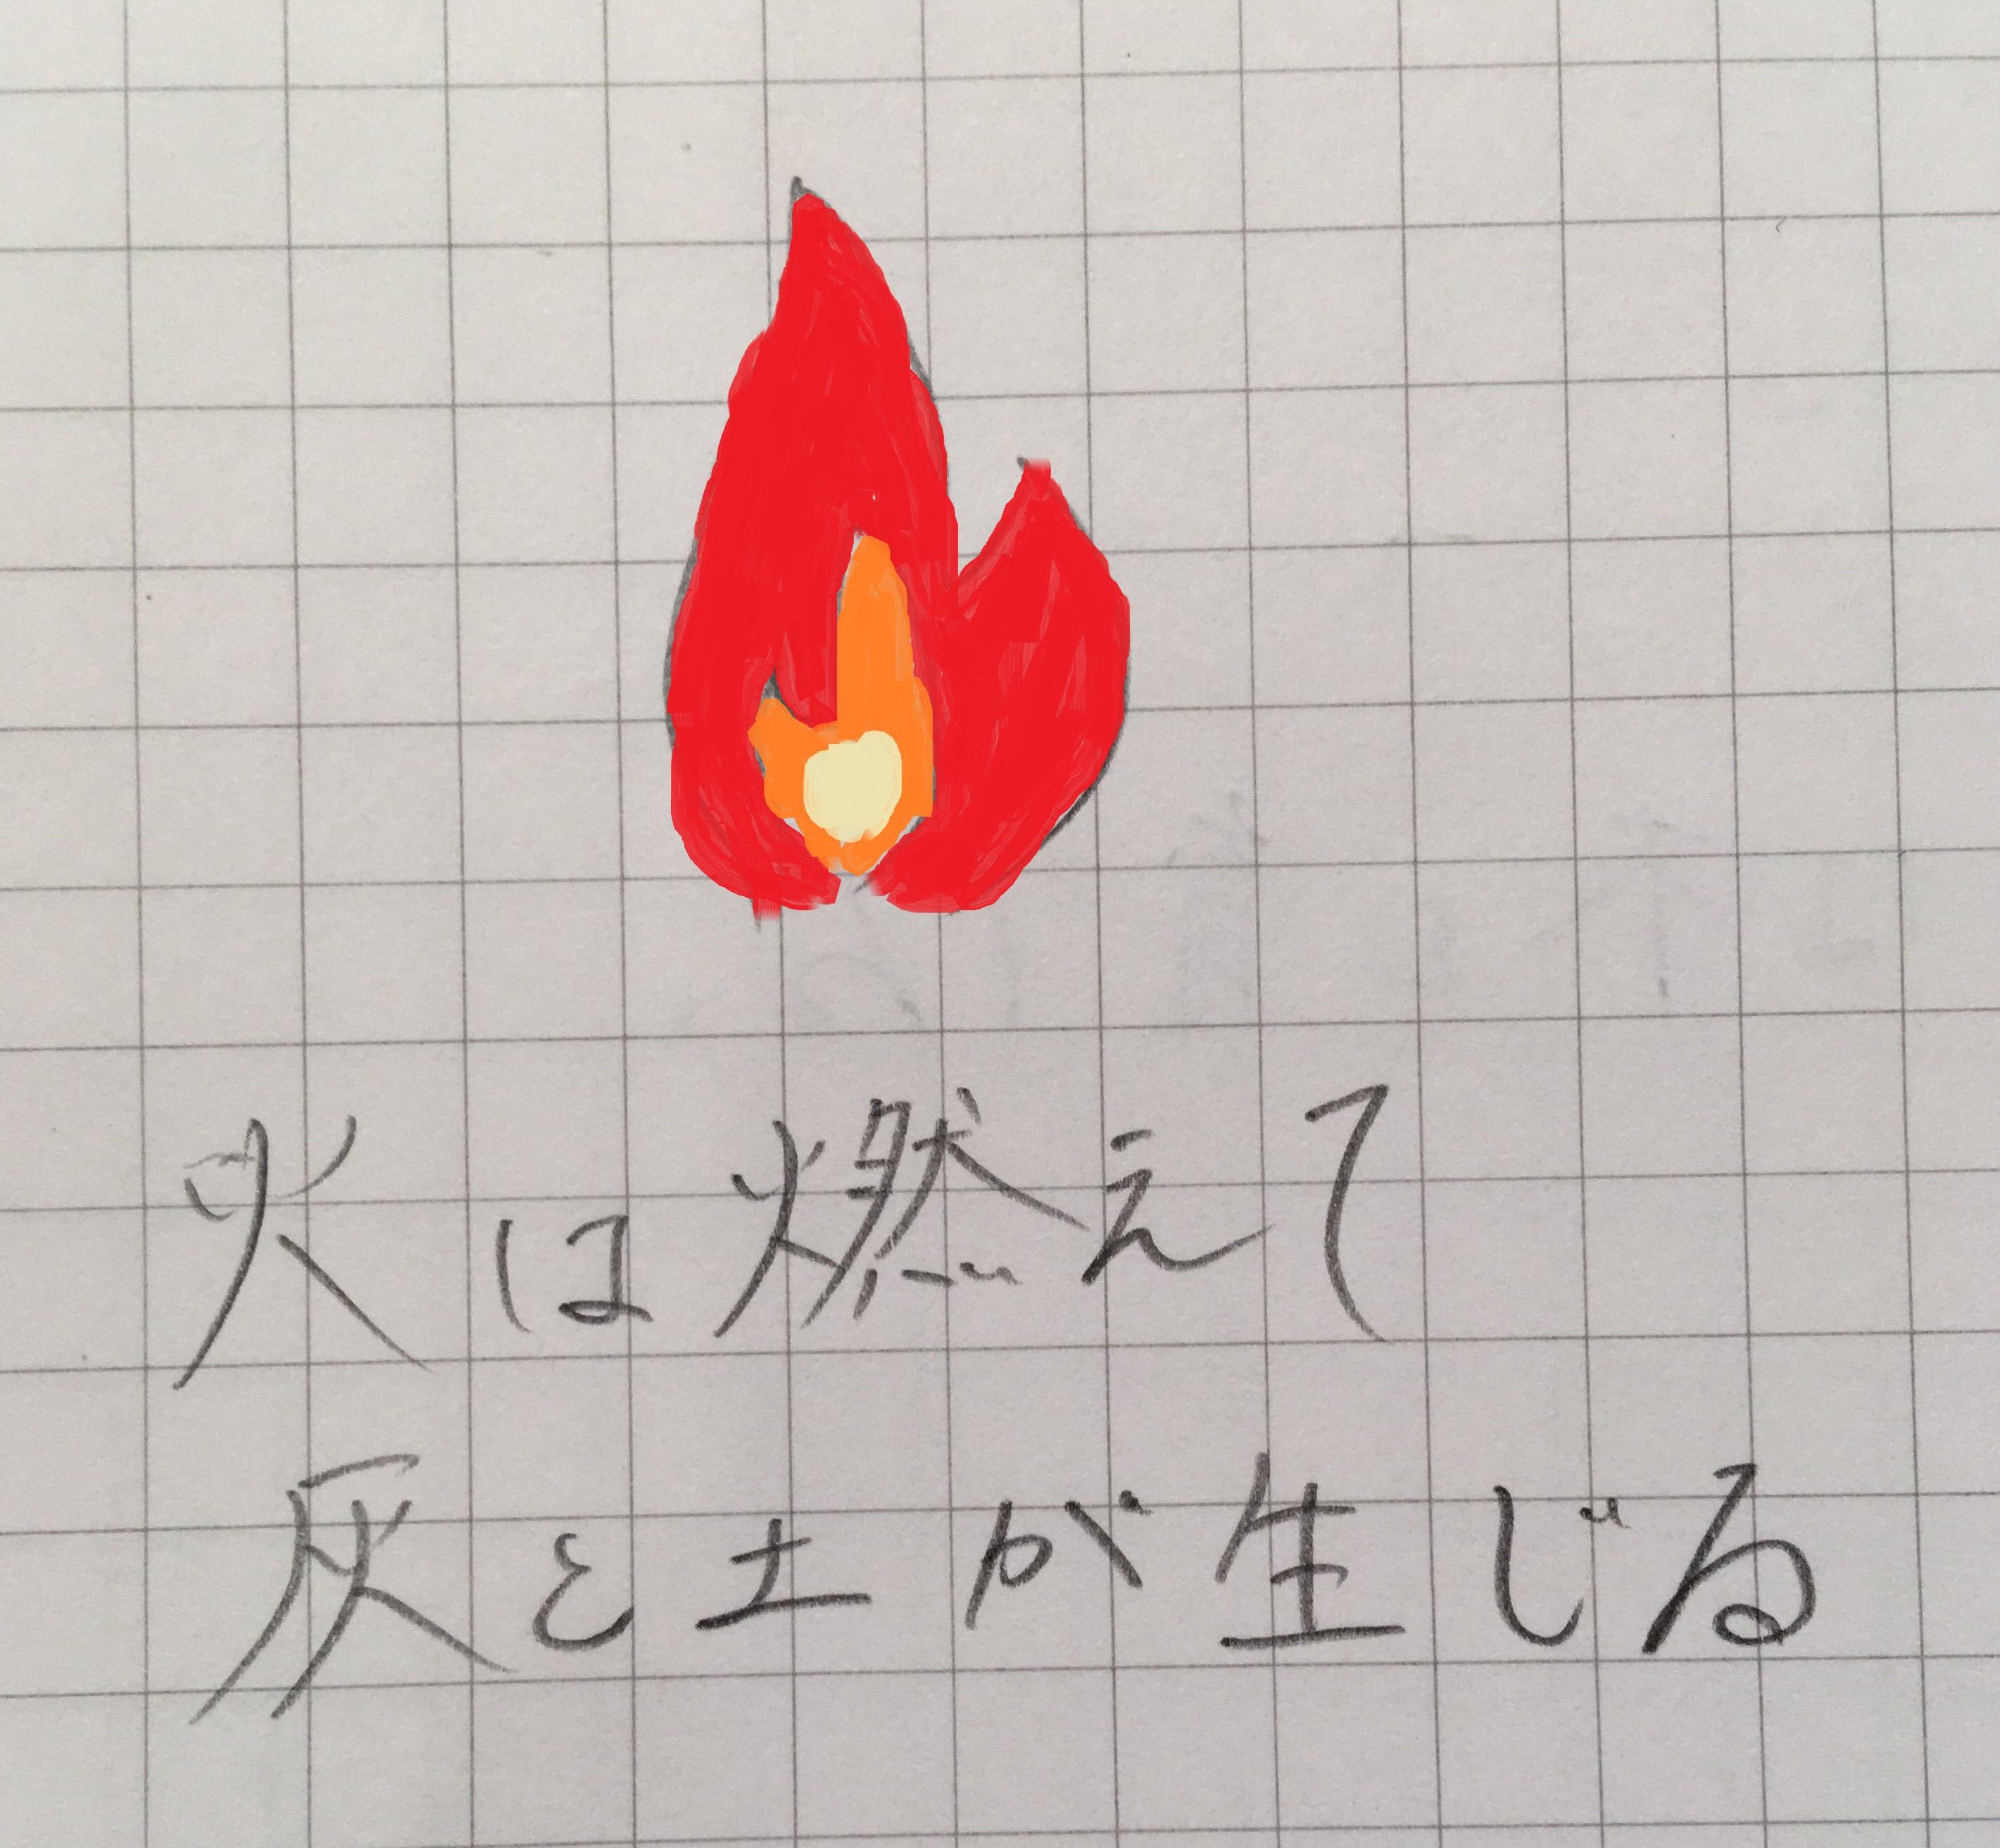 火は燃えて
灰と土が生じる